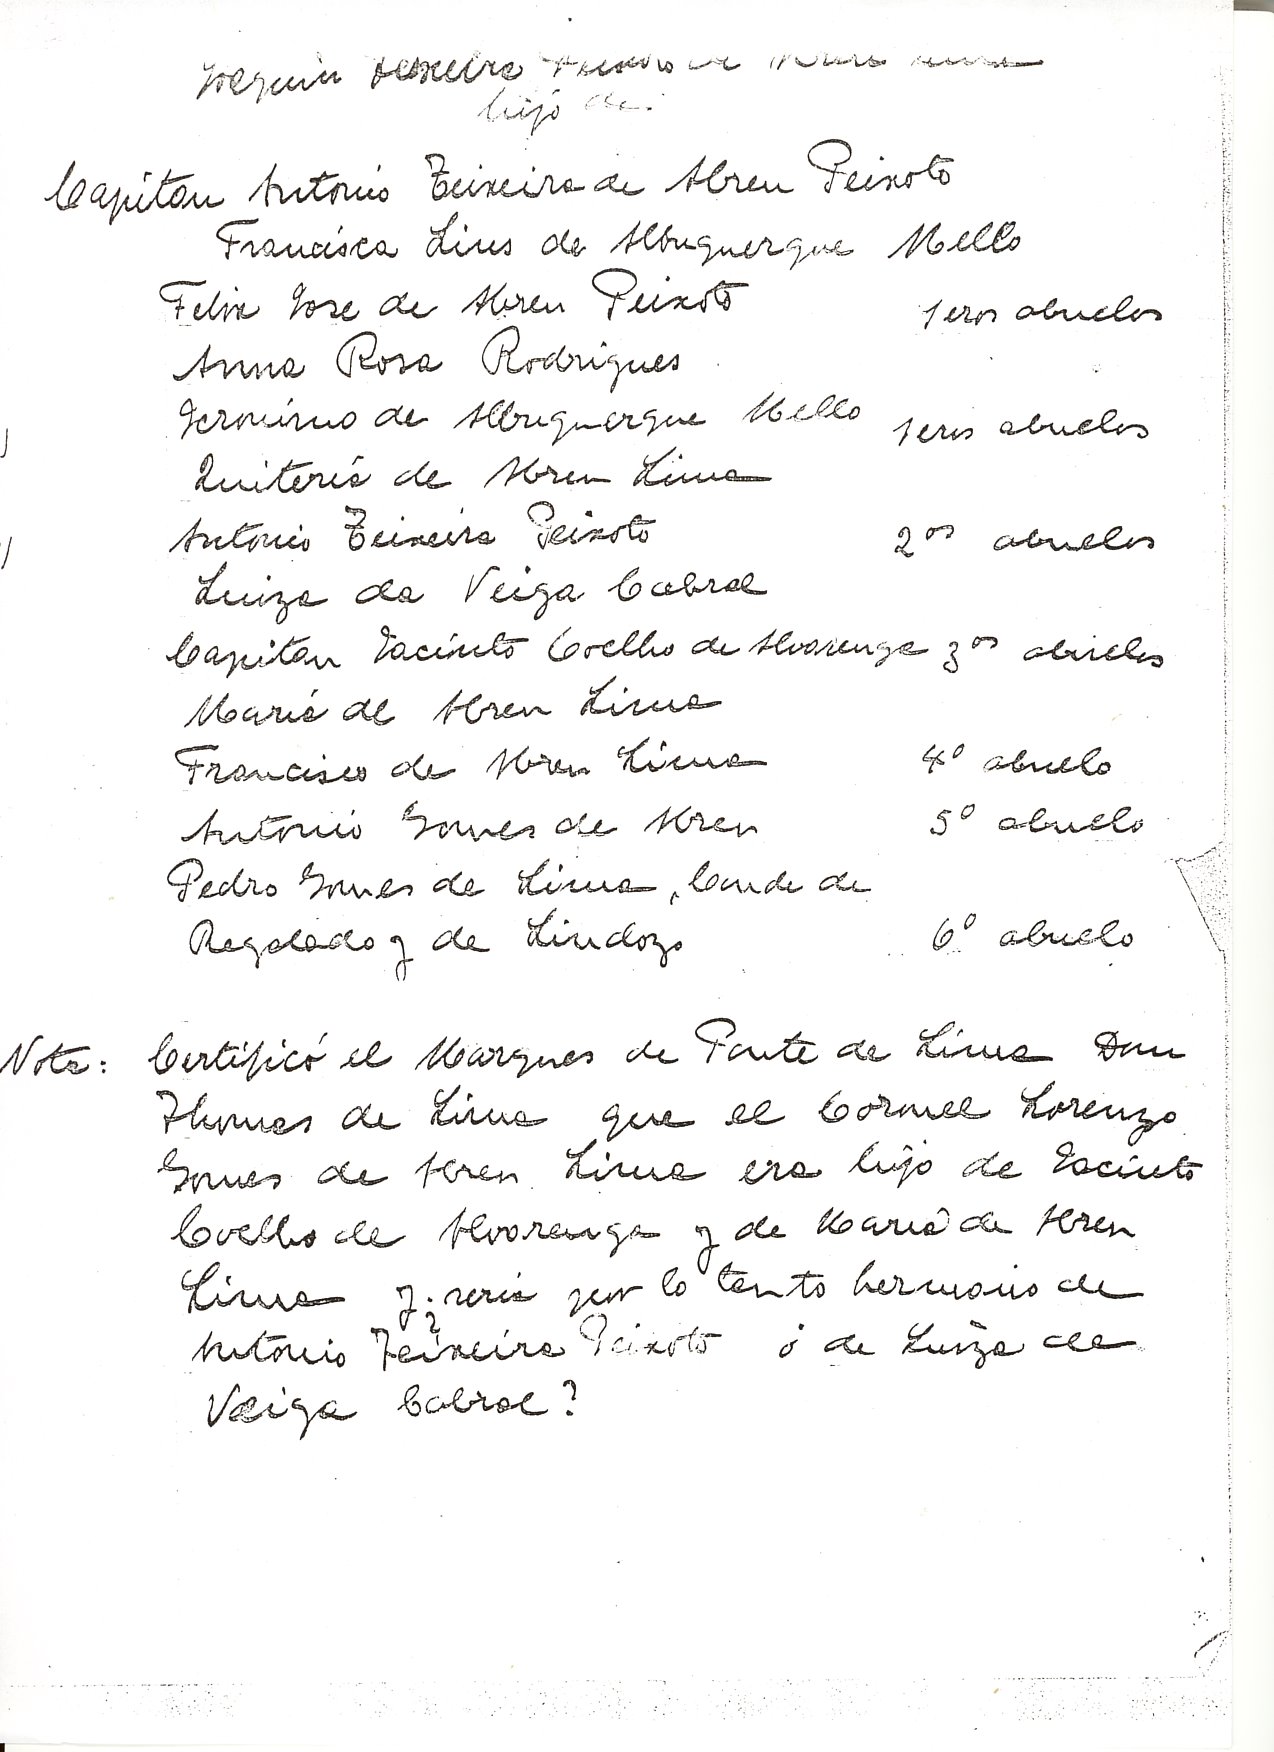 Joaquin Teixeira Peixoto de Abreu Lima
hijo de:
Capitan Antonio Teixeira de Abreu Peixoto
Francisca Lins de Albuquerque Mello
Felix Jose de Abreu Peixoto 1eros abuelos
Anna Rosa Rodrigues
Jeronimo de Albuquerque Mello 1eros abuelos
Quiteria de Abreu Lima
Antonio Teixeira Peixoto 2os abuelos
Luiza da Veiga Cabral
Capitan Jacinto Coelho de Alvarenga 3os abuelos
Maria de Abreu Lima
Francisco de Abreu Lima 4º abuelo
Antonio Gomes de Abreu 5º abuelo
Pedro Gomes de Lima, Conde de
Regalado y de Lindozo 6º abuelo
Nota: Certificó el Marques de Ponte de Lima Don
Thomas de Lima que el Coronel Lorenzo
Gomes de Abreu Lima era hijo de Jacinto
Coelho de Alvarenga y de Maria de Abreu
Lima y ¿seria por lo tanto hermano de
Antonio Teixeira Peixoto ó de Luiza de
Veiga Cabral?